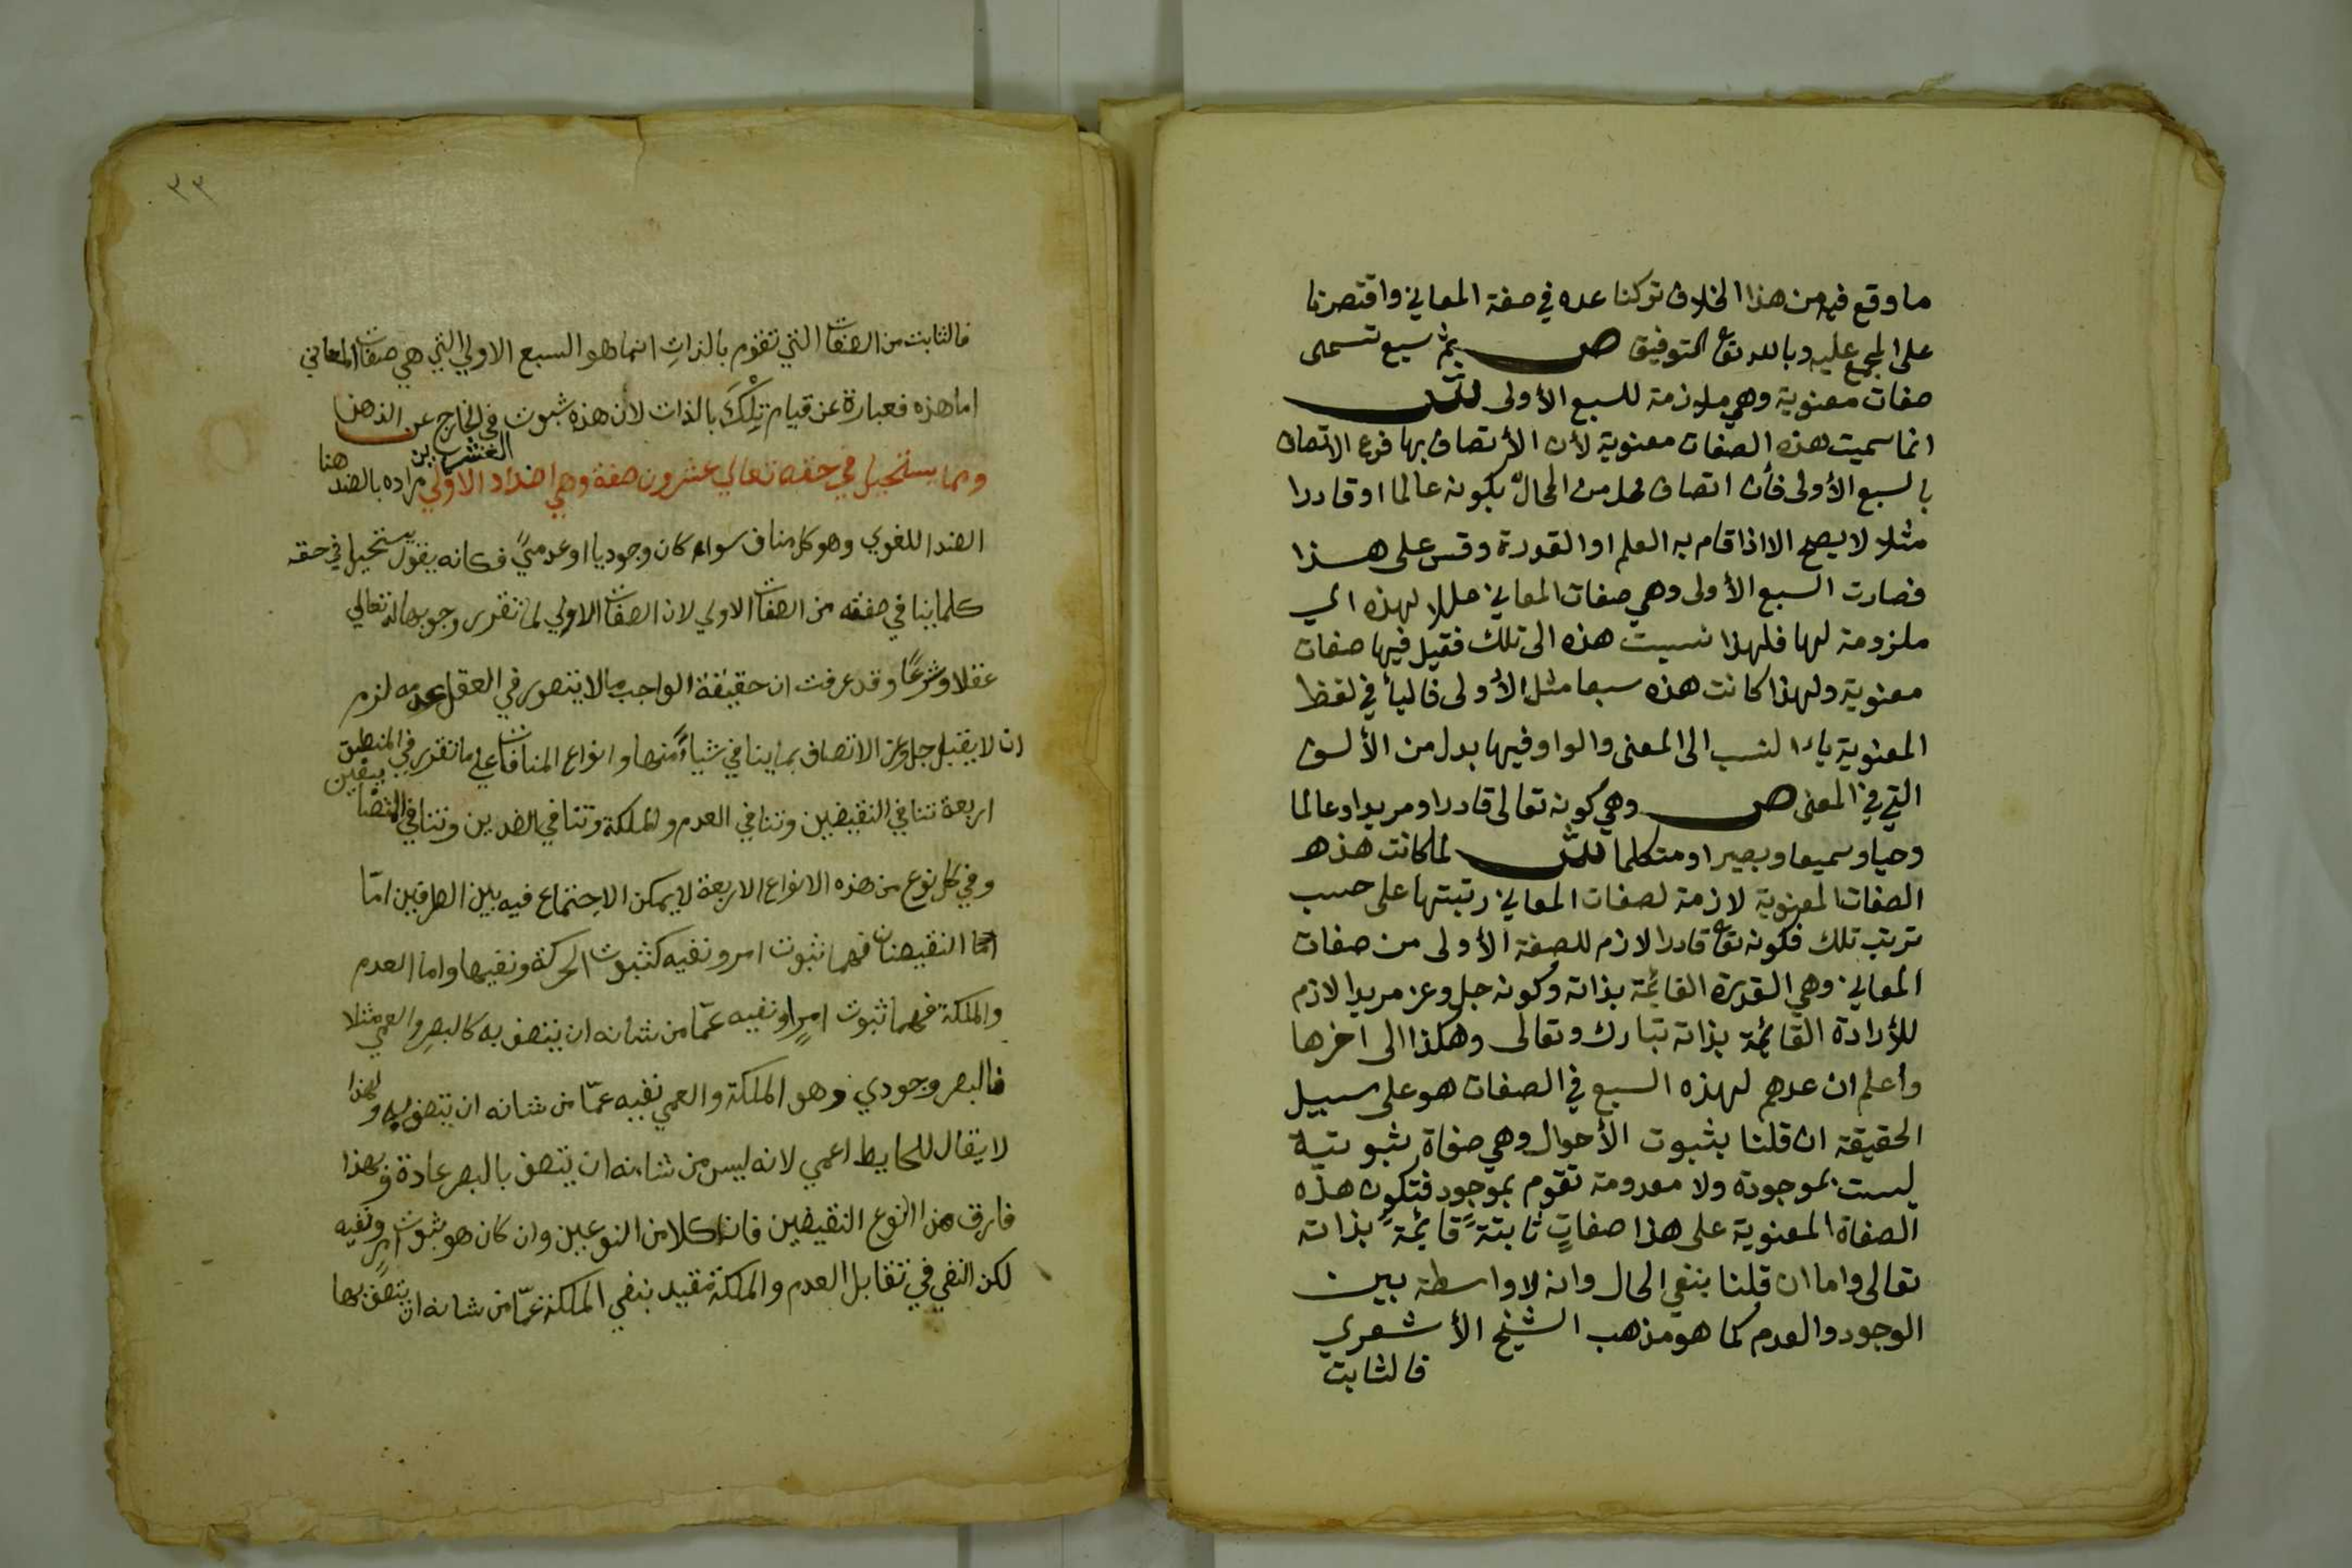 ما وقع فيه من هذا الخلاف تركنا عده في صفة المعاني واقتصرنا
على المجمع عليه وبالله تع التوفيق ص ثم سبع تسمى
صفات معنوية وهي ملازمة للسبع الأولى ش
انما سميت هذه الصفات معنوية لأن الأتصاف بها فرع الاتصاف
بالسبع الأولى فأن اتصاف محل من المحالّ بكونه عالما او قادرا
مثلا لا يصح الا اذا قام به العلم او القدرة وقس على هذا
فصارت السبع الأولى وهي صفات المعاني عللا لهذه اي
ملزومة لها فلهذا نسبت هذه الى تلك فقيل فيها صفات
معنوية ولهذا كانت هذه سبعا مثل الأولى فاليأ في لفظ
المعنوية ياء النسب الى المعنى والواو فيها بدل من الألف
التي في المعنى ص وهي كونه تعالى قادرا ومريدا وعالما
وحيا وسميعا وبصيرا ومتكلما ش لما كانت هذه
الصفات المعنوية لازمة لصفات المعاني رتبتها على حسب
ترتيب تلك فكونه تع قادرا لازم للصفة الأولى من صفات
المعاني وهي القدرة القائمة بذاته وكونه جل وعز مريدا لازم
للأرادة القائمة بذاته تبارك وتعالى وهكذا الى اخرها
وأعلم ان عدهم لهذه السبع في الصفات هو على سبيل
الحقيقة ان قلنا بثبوت الأحوال وهي صفاة ثبوتية
ليست بموجودة ولا معدومة تقوم بموجود فتكون هذه
الصفاة المعنوية على هذا صفاتٍ ثابتةً قائمةً بذاته
تعالى واما ان قلنا بنفي الحال وانه لا واسطة بين
الوجود والعدم كما هو مذهب الشيخ الأشعري
فالثابت
٣٣
فالثابت من الصفات التي تقوم بالذاتِ انما هو السبع الاولي التي هي صفات المعاني
اما هذه فعبارة عن قيام تِلْكَ بالذات لأن هذه ثبوت في الخارج عن الذهن
ومما يستحيل في حقه تعالي عشرون صفة وهي اضداد الاولي العشرين مراده بالضد هنا
الضد اللغوي وهو كل مناف سواء كان وجوديا او عدميًّ فكانه يقول يستحيل في حقه
كلما ينافي صفقه من الصفات الاولي لان الصفات الاولي لما تقرر وجوبها له تعالي
عقلا وشرعًا وقد عرفت ان حقيقة الواجب ما لا يتصور في العقل عدمه لزم
ان لا يقبل جل وعز الاتصاف بما ينافي شياءً منها وانواع المنافات علي ما تقرر في المنطق
اربعة تنافي النقيضين وتنافي العدم والملكة وتنافي الضدين وتنافي المتضايفين
وفي كل نوع من هذه الانواع الاربعة لا يمكن الاجتماع فيه بين الطرفين امّا
امّا النقيضان فهما ثبوت امر ونفيه كثبوت الحركة ونفيها واما العدم
والملكة فهما ثبوت امرٍ او نفيه عمّا من شانه ان يتصف به كالبصر والعمي مثلا
فالبصر وجودي وهو الملكة والعمي نفيه عمّا من شانه ان يتصف به ولهذا
لا يقال للحايط اعمي لانه ليس من شانه ان يتصف بالبصر عادة وبهذا
فارق هذا النوع النقيضين فان كلا من النوعين وان كان هو ثبوت امرٍ ونفيه
لكن النفي في تقابل العدم والملكة مقيد بنفي الملكة عمّا من شانه ان يتصف بها